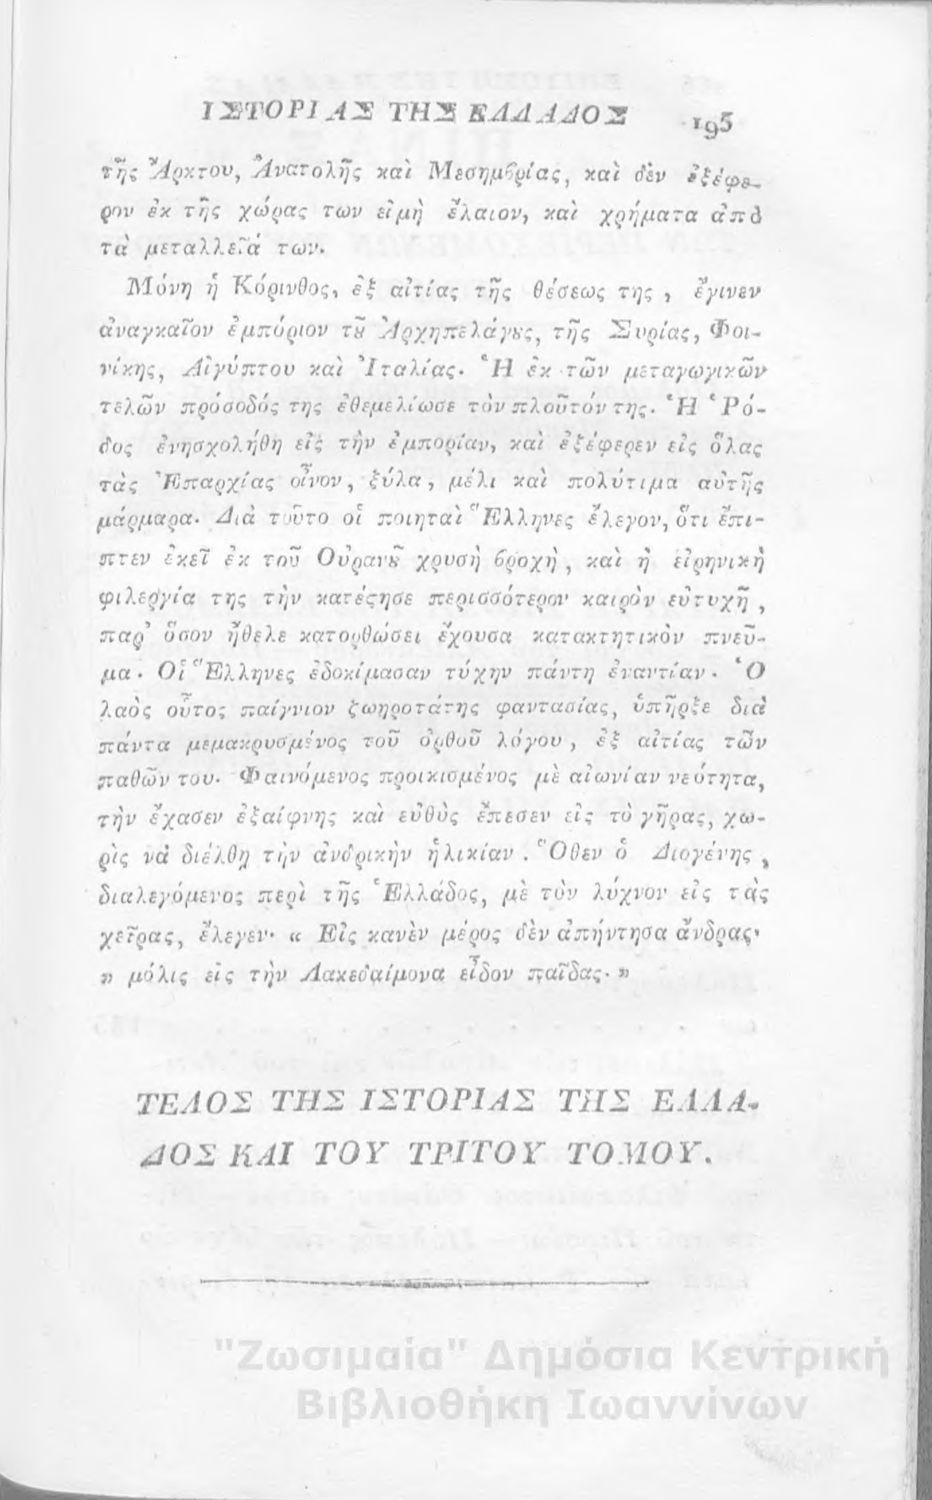 ΙΣΤΟΡΙΑΣ ΤΗΣ ΕΛΛΑΔΟΣ 195
τῆς Ἄρκτου, Ἀνατολῆς καὶ Μεσημβρίας, καὶ δὲν ἐξέφε-
ρον ἐκ τῆς χώρας των εἰμὴ ἔλαιον, καὶ χρήματα ἀπὸ
τὰ μεταλλεῖά των.
Μόνη ἡ Κόρινθος, ἐξ αἰτίας τῆς θέσεως της, ἔγινεν
ἀναγκαῖον ἐμπόριον τȣ͂ Ἀρχηπελάγȣς, τῆς Συρίας, Φοι-
νίκης, Αἰγύπτου καὶ Ἰταλίας. Ἡ ἐκ τῶν μεταγωγικῶν
τελῶν πρόσοδός της ἐθεμελίωσε τὸν πλοῦτόν της. Ἡ Ῥό-
δος ἐνησχολήθη εἰς τὴν ἐμπορίαν, καὶ ἐξέφερεν εἰς ὅλας
τὰς Ἐπαρχίας οἶνον, ξύλα, μέλι καὶ πολύτιμα αὐτῆς
μάρμαρα. Διὰ τοῦτο οἱ ποιηταὶ Ἕλληνες ἔλεγον, ὅτι ἔπι-
πτεν ἐκεῖ ἐκ τοῦ Οὐρανȣ͂ χρυσὴ βροχὴ, καὶ ἡ εἰρηνικὴ
φιλεργία της τὴν κατέϛησε περισσότερον καιρὸν εὐτυχῆ,
παρ' ὅσον ἤθελε κατορθώσει ἔχουσα κατακτητικὸν πνεῦ-
μα. Οἱ Ἕλληνες ἐδοκίμασαν τύχην πάντη ἐναντίαν. Ὁ
λαὸς οὗτος παίγνιον ζωηροτάτης φαντασίας, ὑπῆρξε διὰ
πάντα μεμακρυσμένος τοῦ ὀρθοῦ λόγου, ἐξ αἰτίας τῶν
παθῶν του. Φαινόμενος προικισμένος μὲ αἰωνίαν νεότητα,
τὴν ἔχασεν ἐξαίφνης καὶ εὐθὺς ἔπεσεν εἰς τὸ γῆρας, χω-
ρὶς νὰ διέλθῃ τὴν ἀνδρικὴν ἡλικίαν. Ὅθεν ὁ Διογένης,
διαλεγόμενος περὶ τῆς Ἑλλάδος, μὲ τὸν λύχνον εἰς τὰς
χεῖρας, ἔλεγεν· « Εἰς κανὲν μέρος δὲν ἀπήντησα ἄνδρας·
» μόλις εἰς τὴν Λακεδαίμονα εἶδον παῖδας. »
ΤΕΛΟΣ ΤΗΣ ΙΣΤΟΡΙΑΣ ΤΗΣ ΕΛΛΑ-
ΔΟΣ ΚΑΙ ΤΟΥ ΤΡΙΤΟΥ ΤΟΜΟΥ.
"Ζωσιμαία" Δημόσια Κεντρική
Βιβλιοθήκη Ιωαννίνων